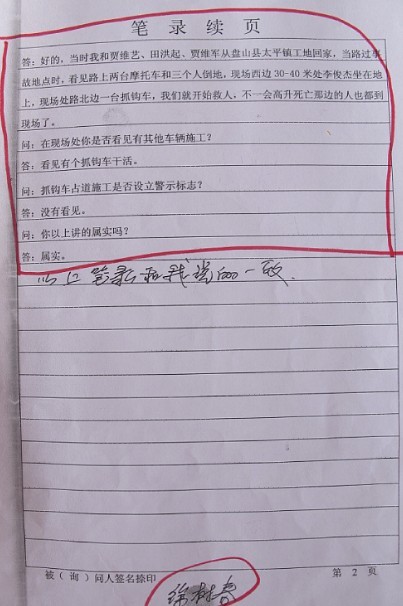 笔录续页
答：好的，当时我和贾维艺、田洪起、贾维军从盘山县太平镇工地回家，当路过事
故地点时，看见路上两台摩托车和三个人倒地，现场西边 30-40 米处李俊杰坐在地
上，现场处路北边一台抓钩车，我们就开始救人，不一会高升死亡那边的人也都到
现场了。
问：在现场处你是否看见有其他车辆施工？
答：看见有个抓钩车干活。
问：抓钩车占道施工是否设立警示标志？
答：没有看见。
问：你以上讲的属实吗？
答：属实。
以上笔录和我说的一致.
被（询）问人签名捺印
第 2 页
徐树春